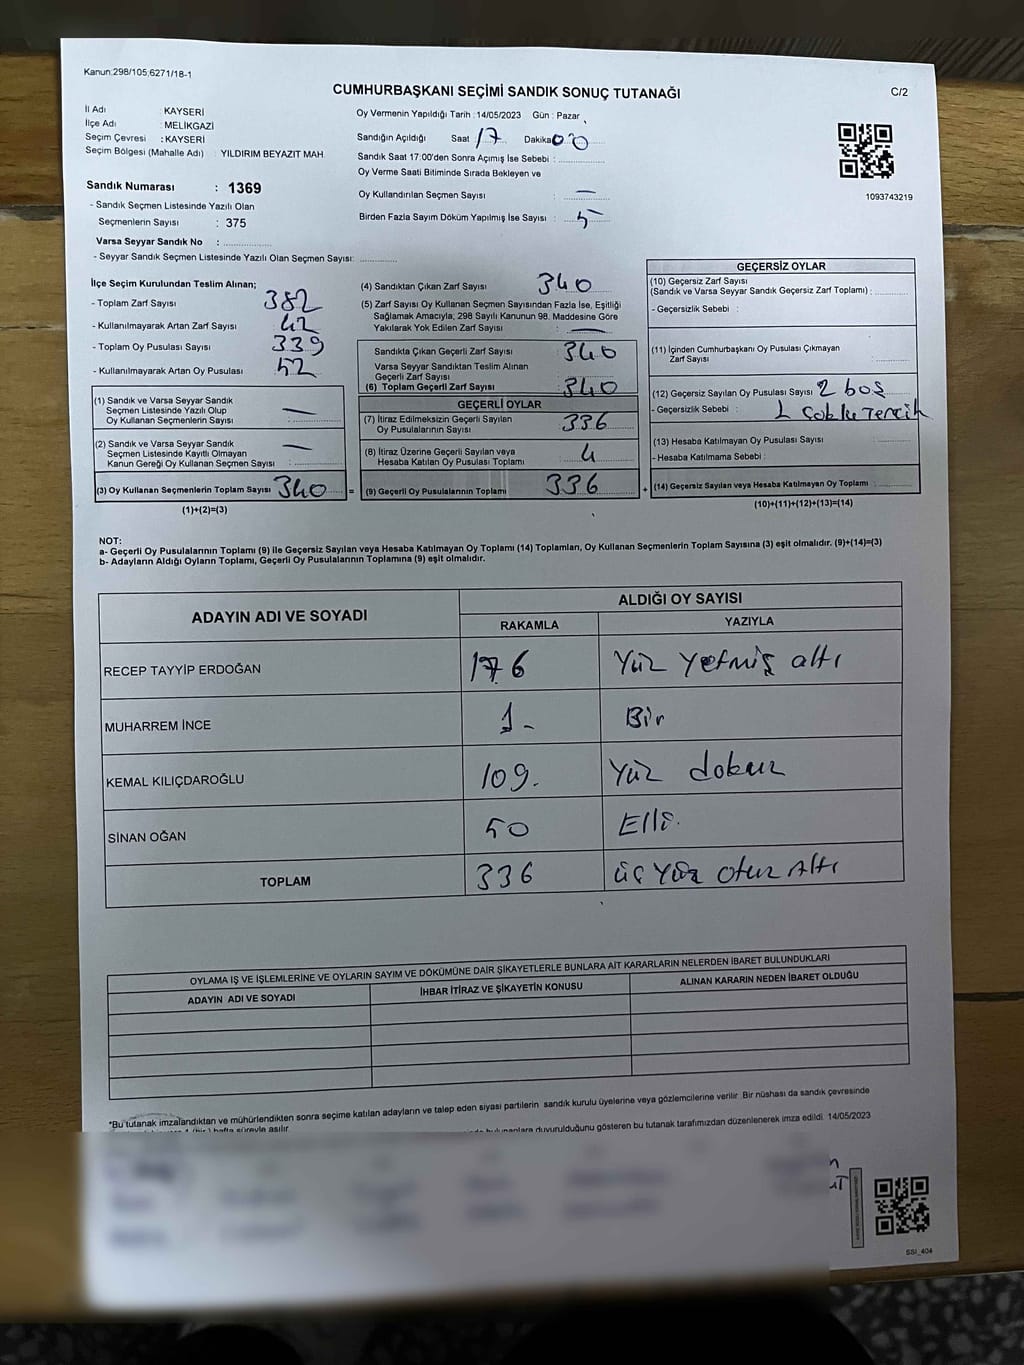 Kanun:298/105,6271/18-1
CUMHURBAŞKANI SEÇİMİ SANDIK SONUÇ TUTANAĞI
C/2
İl Adı : KAYSERİ
İlçe Adı : MELİKGAZİ
Seçim Çevresi : KAYSERİ
Seçim Bölgesi (Mahalle Adı) : YILDIRIM BEYAZIT MAH.
Sandık Numarası : 1369
- Sandık Seçmen Listesinde Yazılı Olan
Seçmenlerin Sayısı : 375
Varsa Seyyar Sandık No :
- Seyyar Sandık Seçmen Listesinde Yazılı Olan Seçmen Sayısı:
Oy Vermenin Yapıldığı Tarih : 14/05/2023 Gün : Pazar
Sandığın Açıldığı Saat 17 Dakika 00
Sandık Saat 17:00'den Sonra Açımış İse Sebebi :
Oy Verme Saati Bitiminde Sırada Bekleyen ve
Oy Kullandırılan Seçmen Sayısı : —
Birden Fazla Sayım Döküm Yapılmış İse Sayısı : 5
1093743219
İlçe Seçim Kurulundan Teslim Alınan;
- Toplam Zarf Sayısı 382
- Kullanılmayarak Artan Zarf Sayısı 42
- Toplam Oy Pusulası Sayısı 339
- Kullanılmayarak Artan Oy Pusulası 52
(1) Sandık ve Varsa Seyyar Sandık
Seçmen Listesinde Yazılı Olup
Oy Kullanan Seçmenlerin Sayısı : —
(2) Sandık ve Varsa Seyyar Sandık
Seçmen Listesinde Kayıtlı Olmayan
Kanun Gereği Oy Kullanan Seçmen Sayısı : —
(3) Oy Kullanan Seçmenlerin Toplam Sayısı 340 =
(1)+(2)=(3)
(4) Sandıktan Çıkan Zarf Sayısı 340
(5) Zarf Sayısı Oy Kullanan Seçmen Sayısından Fazla İse, Eşitliği
Sağlamak Amacıyla; 298 Sayılı Kanunun 98. Maddesine Göre
Yakılarak Yok Edilen Zarf Sayısı —
Sandıkta Çıkan Geçerli Zarf Sayısı 340
Varsa Seyyar Sandıktan Teslim Alınan
Geçerli Zarf Sayısı
(6) Toplam Geçerli Zarf Sayısı 340
GEÇERLİ OYLAR
(7) İtiraz Edilmeksizin Geçerli Sayılan
Oy Pusulalarının Sayısı 336
(8) İtiraz Üzerine Geçerli Sayılan veya
Hesaba Katılan Oy Pusulası Toplamı 4
(9) Geçerli Oy Pusulalarının Toplamı 336 +
GEÇERSİZ OYLAR
(10) Geçersiz Zarf Sayısı
(Sandık ve Varsa Seyyar Sandık Geçersiz Zarf Toplamı) :
- Geçersizlik Sebebi :
(11) İçinden Cumhurbaşkanı Oy Pusulası Çıkmayan
Zarf Sayısı
(12) Geçersiz Sayılan Oy Pusulası Sayısı 2 boş
- Geçersizlik Sebebi : 2 çoklu Tercih
(13) Hesaba Katılmayan Oy Pusulası Sayısı
- Hesaba Katılmama Sebebi :
(14) Geçersiz Sayılan veya Hesaba Katılmayan Oy Toplamı :
(10)+(11)+(12)+(13)=(14)
NOT:
a- Geçerli Oy Pusulalarının Toplamı (9) ile Geçersiz Sayılan veya Hesaba Katılmayan Oy Toplamı (14) Toplamları, Oy Kullanan Seçmenlerin Toplam Sayısına (3) eşit olmalıdır. (9)+(14)=(3)
b- Adayların Aldığı Oyların Toplamı, Geçerli Oy Pusulalarının Toplamına (9) eşit olmalıdır.
ADAYIN ADI VE SOYADI ALDIĞI OY SAYISI
RAKAMLA YAZIYLA
RECEP TAYYİP ERDOĞAN 176 Yüz Yetmiş altı
MUHARREM İNCE 1- Bir
KEMAL KILIÇDAROĞLU 109. Yüz dokuz
SİNAN OĞAN 50 Elli.
TOPLAM 336 üç Yüz otuz Altı
OYLAMA İŞ VE İŞLEMLERİNE VE OYLARIN SAYIM VE DÖKÜMÜNE DAİR ŞİKAYETLERLE BUNLARA AİT KARARLARIN NELERDEN İBARET BULUNDUKLARI
ADAYIN ADI VE SOYADI İHBAR İTİRAZ VE ŞİKAYETİN KONUSU ALINAN KARARIN NEDEN İBARET OLDUĞU
*Bu tutanak imzalandıktan ve mühürlendikten sonra seçime katılan adayların ve talep eden siyasi partilerin sandık kurulu üyelerine veya gözlemcilerine verilir. Bir nüshası da sandık çevresinde
duyurulduğunu gösteren bu tutanak tarafımızdan düzenlenerek imza edildi. 14/05/2023
SSI_404